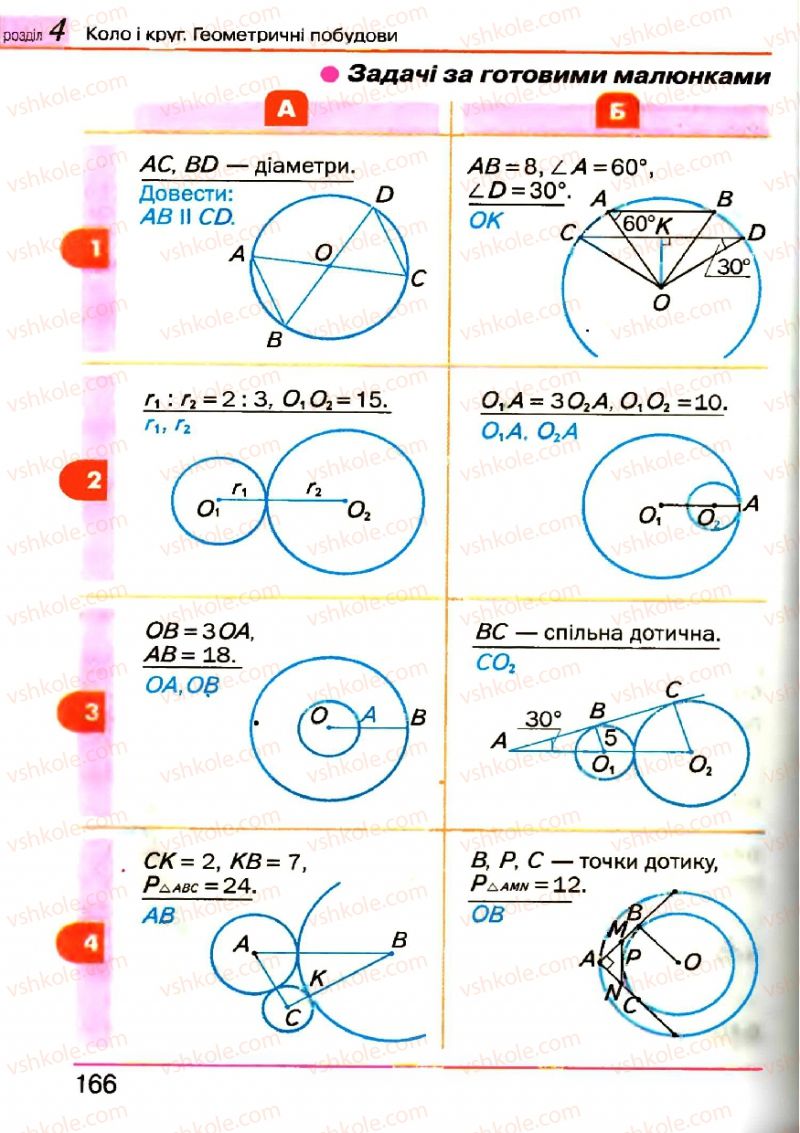 розділ 4 Коло і круг. Геометричні побудови
Задачі за готовими малюнками
А Б
1
AC, BD — діаметри.
Довести:
AB II CD.
D
A
O
C
B
AB = 8, ∠A = 60°,
∠D = 30°.
OK
A
B
C
60°
K
D
30°
O
2
r₁ : r₂ = 2 : 3, O₁O₂ = 15.
r₁, r₂
r₁
r₂
O₁
O₂
O₁A = 3O₂A, O₁O₂ = 10.
O₁A, O₂A
O₁
O₂
A
3
OB = 3OA,
AB = 18.
OA, OB
O
A
B
BC — спільна дотична.
CO₂
C
30°
B
A
5
O₁
O₂
4
CK = 2, KB = 7,
P△ABC = 24.
AB
A
B
K
C
B, P, C — точки дотику,
P△AMN = 12.
OB
B
M
A
P
O
N
C
166
vshkole.com